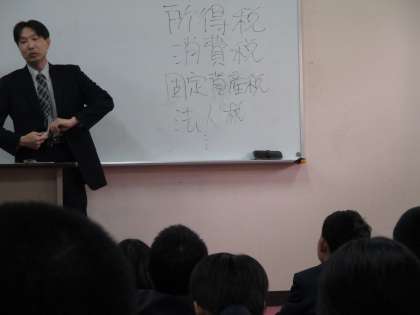 所得税
消費税
固定資産税
法人税
⋮